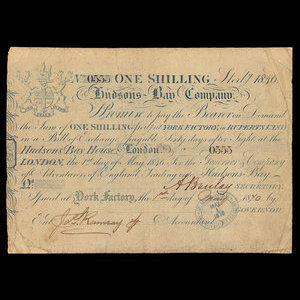 No 0555 ONE SHILLING Sterl
Hudsons Bay Company.
Promise to pay the Bearer on Demand
the Sum of ONE SHILLING YORK FACTORY, in RUPERTS LAND
in a Bill of Exchange payable Sixty days after Sight at the
Hudsons Bay House London. 0555
LONDON, the 1st day of May 1846 For the Governor & Company
of Adventurers of England Trading into Hudsons Bay
SECRETARY
Issued at York Factory, the day of by
Accountant GOVERNOR